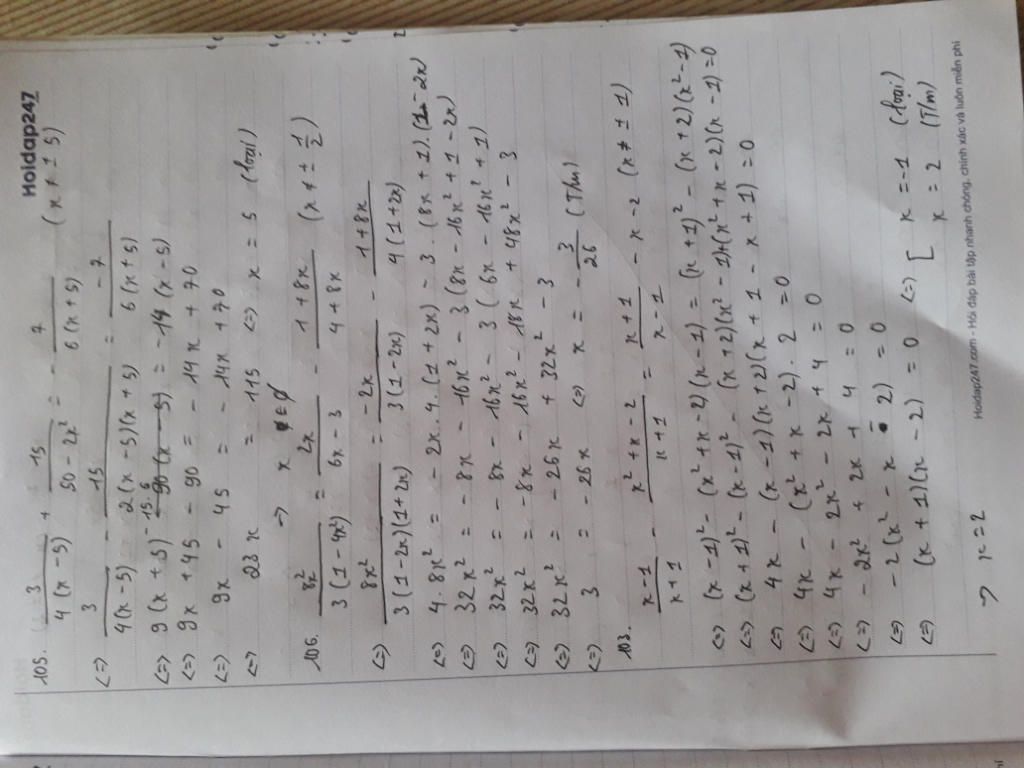 Hoidap247
105. 3/(4(x-5)) + 15/(50-2x²) = - 7/(6(x+5)) (x ≠ ± 5)
<=> 3/(4(x-5)) - 15/(2(x-5)(x+5)) = -7/(6(x+5))
<=> 9(x+5) - 15.6 = -14(x-5)
<=> 9x + 45 - 90 = -14x + 70
<=> 9x - 45 = -14x + 70
<=> 23x = 115 <=> x = 5 (loại)
=> x ∈ ∅
106. 8x²/(3(1-4x²)) = 2x/(6x-3) - (1+8x)/(4+8x) (x ≠ ± 1/2)
<=> 8x²/(3(1-2x)(1+2x)) = -2x/(3(1-2x)) - (1+8x)/(4(1+2x))
<=> 4.8x² = -2x.4.(1+2x) - 3.(8x+1).(1-2x)
<=> 32x² = -8x - 16x² - 3(8x - 16x² + 1 - 2x)
<=> 32x² = -8x - 16x² - 3(6x - 16x² + 1)
<=> 32x² = -8x - 16x² - 18x + 48x² - 3
<=> 32x² = -26x + 32x² - 3
<=> 3 = -26x <=> x = -3/26 (T/m)
103. (x-1)/(x+1) - (x²+x-2)/(x+1) = (x+1)/(x-1) - x - 2 (x ≠ ± 1)
<=> (x-1)² - (x²+x-2)(x-1) = (x+1)² - (x+2)(x²-1)
<=> (x+1)² - (x-1)² - (x+2)(x²-1)+(x²+x-2)(x-1)=0
<=> 4x - (x-1)(x+2)(x+1-x+1)=0
<=> 4x - (x²+x-2).2=0
<=> 4x - 2x² - 2x + 4 = 0
<=> -2x² + 2x + 4 = 0
<=> -2(x² - x - 2) = 0
<=> (x+1)(x-2) = 0 <=> [ x = -1 (loại)
x = 2 (T/m)
=> x = 2
Hoidap247.com - Hỏi đáp bài tập nhanh chóng, chính xác và luôn miễn phí